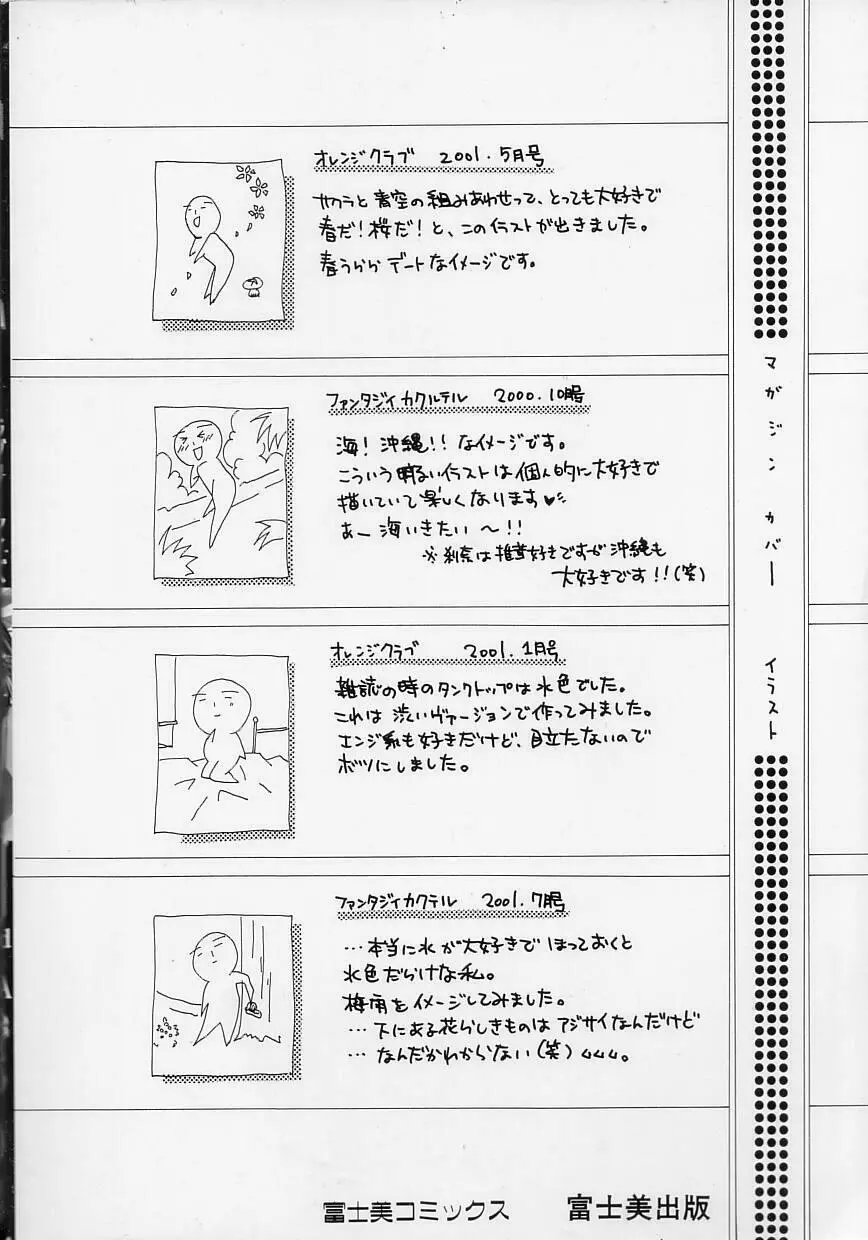 オレンジクラブ 2001.5月号
サクラと青空の組みあわせって、とっても大好きで
春だ!桜だ!と、このイラストが出きました。
春うららデートなイメージです。
ファンタジィカクルテル 2000.10月号
海!沖縄!!なイメージです。
こういう明るいイラストは個人的に大好きで
描いていて楽しくなります♥
あー海いきたい〜!!
※刹奈は椎茸好きですが沖縄も
大好きです!!(笑)
オレンジクラブ 2001.1月号
雑誌の時のタンクトップは水色でした。
これは渋いヴァージョンで作ってみました。
エンジ系も好きだけど、目立たないので
ボツにしました。
ファンタジィカクテル 2001.7月号
…本当に水が大好きでほっておくと
水色だらけな私。
梅雨をイメージしてみました。
…下にある花らしきものはアジサイなんだけど
…なんだかわからない(笑)
マガジンカバーイラスト
富士美コミックス 富士美出版